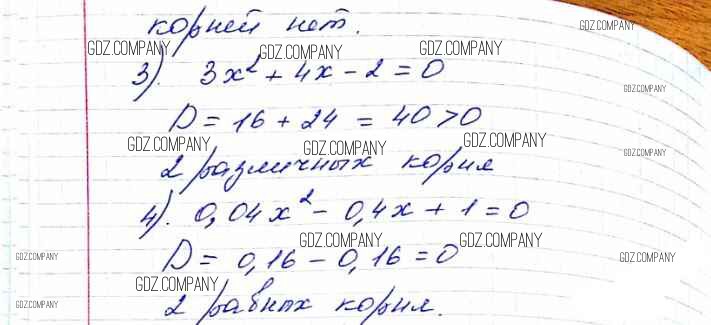 корней нет.
GDZ.COMPANY
GDZ.COMPANY GDZ.COMPANY GDZ.COMPANY
3). 3x² + 4x - 2 = 0
GDZ.COMPANY
D = 16 + 24 = 40 > 0
GDZ.COMPANY GDZ.COMPANY GDZ.COMPANY GDZ.COMPANY
2 различных корня
4). 0,04x² - 0,4x + 1 = 0
GDZ.COMPANY GDZ.COMPANY
D = 0,16 - 0,16 = 0
GDZ.COMPANY GDZ.COMPANY
GDZ.COMPANY
2 равных корня.
GDZ.COMPANY